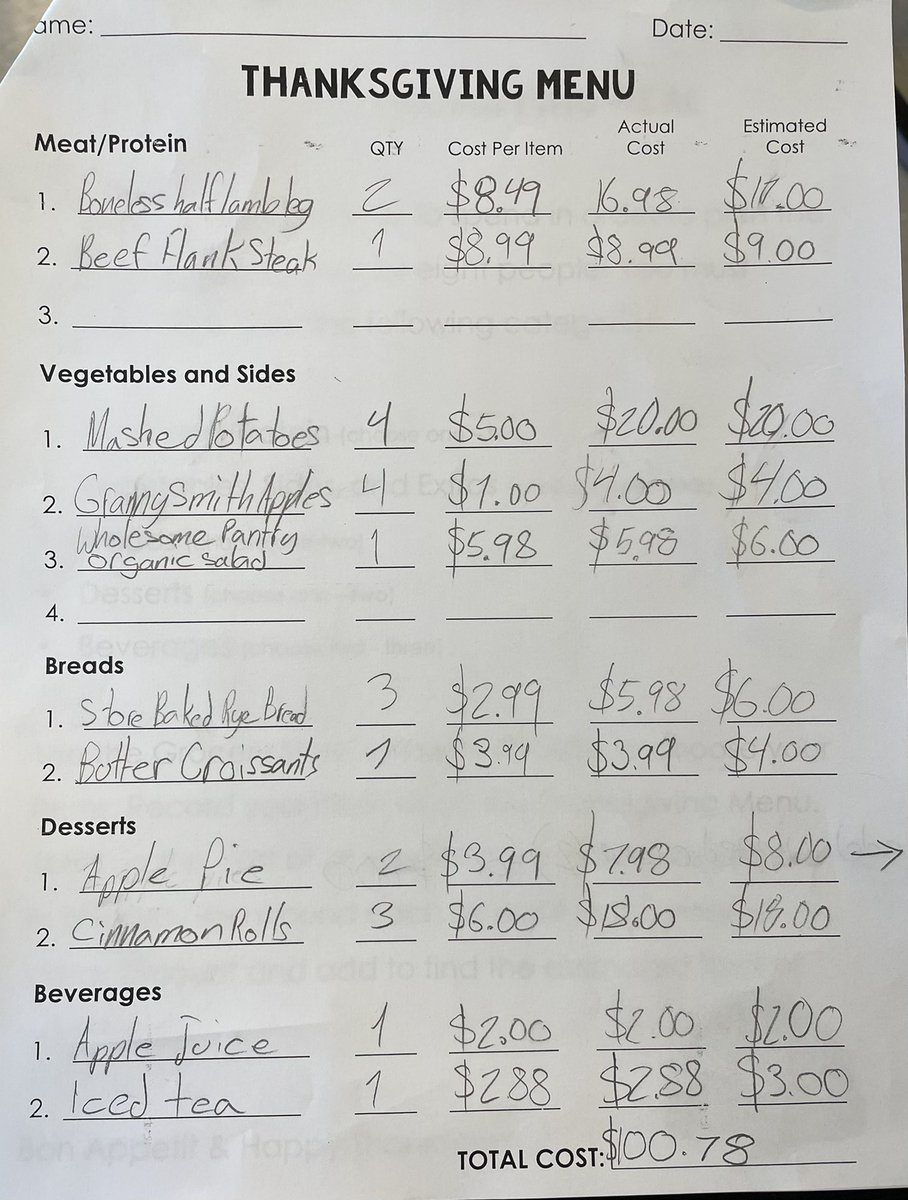 ame: Date:
THANKSGIVING MENU
Meat/Protein QTY Cost Per Item Actual Cost Estimated Cost
1. Boneless half lamb leg 2 $8.49 16.98 $17.00
2. Beef Flank Steak 1 $8.99 $8.99 $9.00
3.
Vegetables and Sides
1. Mashed Potatoes 4 $5.00 $20.00 $20.00
2. Granny Smith Apples 4 $1.00 $4.00 $4.00
Wholesome Pantry
3. Organic Salad 1 $5.98 $5.98 $6.00
4.
Breads
1. Store Baked Rye Bread 3 $2.99 $5.98 $6.00
2. Butter Croissants 1 $3.99 $3.99 $4.00
Desserts
1. Apple Pie 2 $3.99 $7.98 $8.00 →
2. Cinnamon Rolls 3 $6.00 $18.00 $18.00
Beverages
1. Apple Juice 1 $2.00 $2.00 $2.00
2. Iced tea 1 $2.88 $2.88 $3.00
TOTAL COST: $100.78